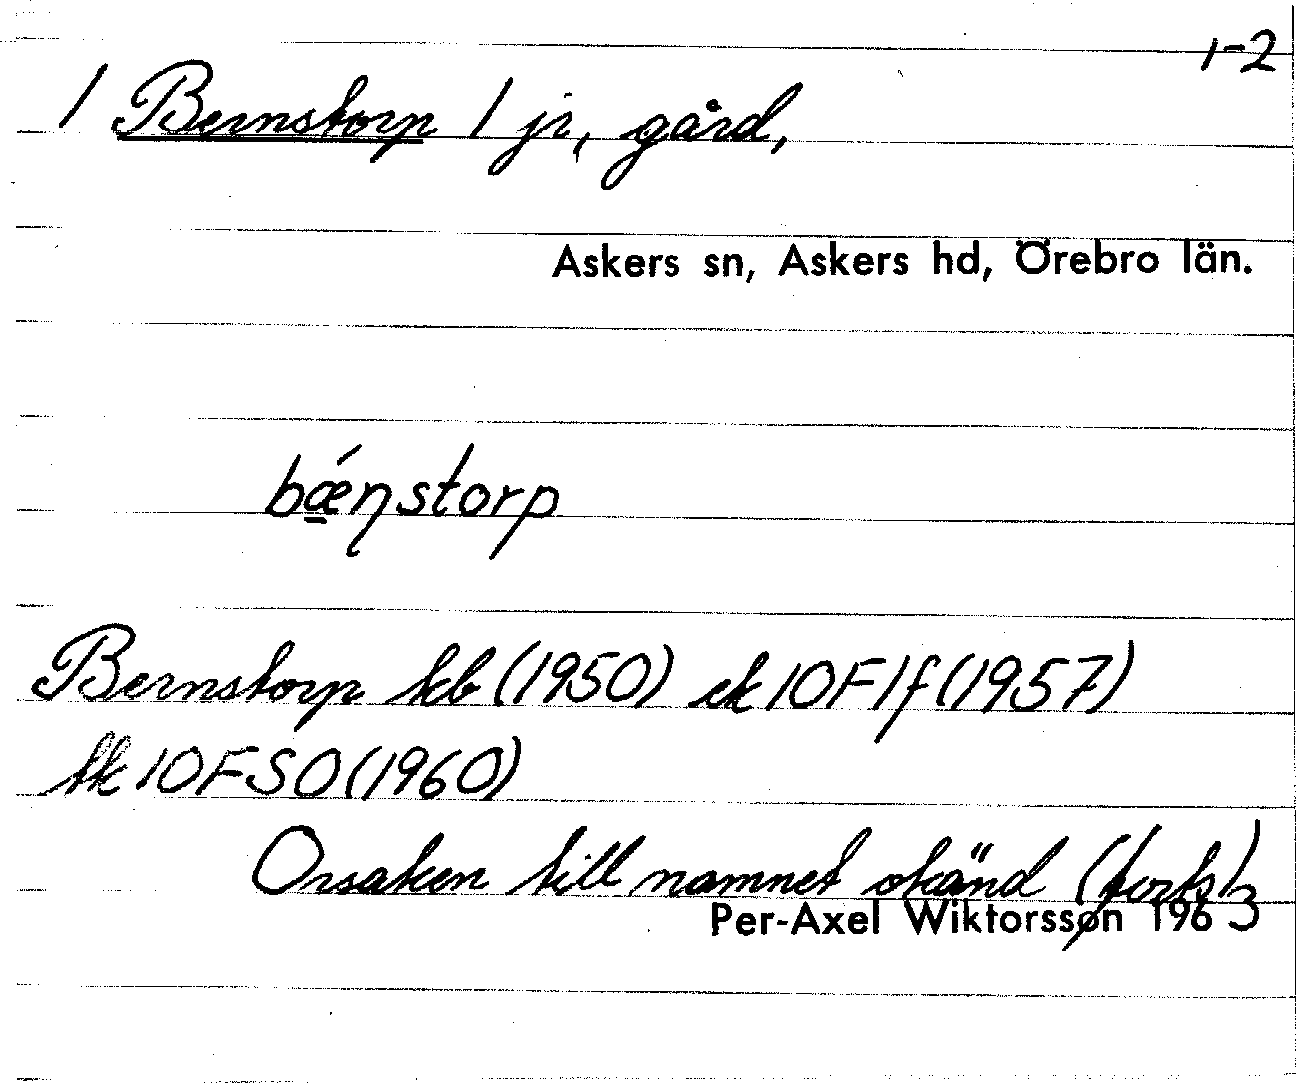 1-2
/ Bernstorp / jr, gård,
Askers sn, Askers hd, Örebro län.
bǽ̱ꞃstorp
Bernstorp kb (1950) ek 10F1f (1957)
tk 10FSO (1960)
Orsaken till namnet okänd (forts)
Per-Axel Wiktorsson 1963